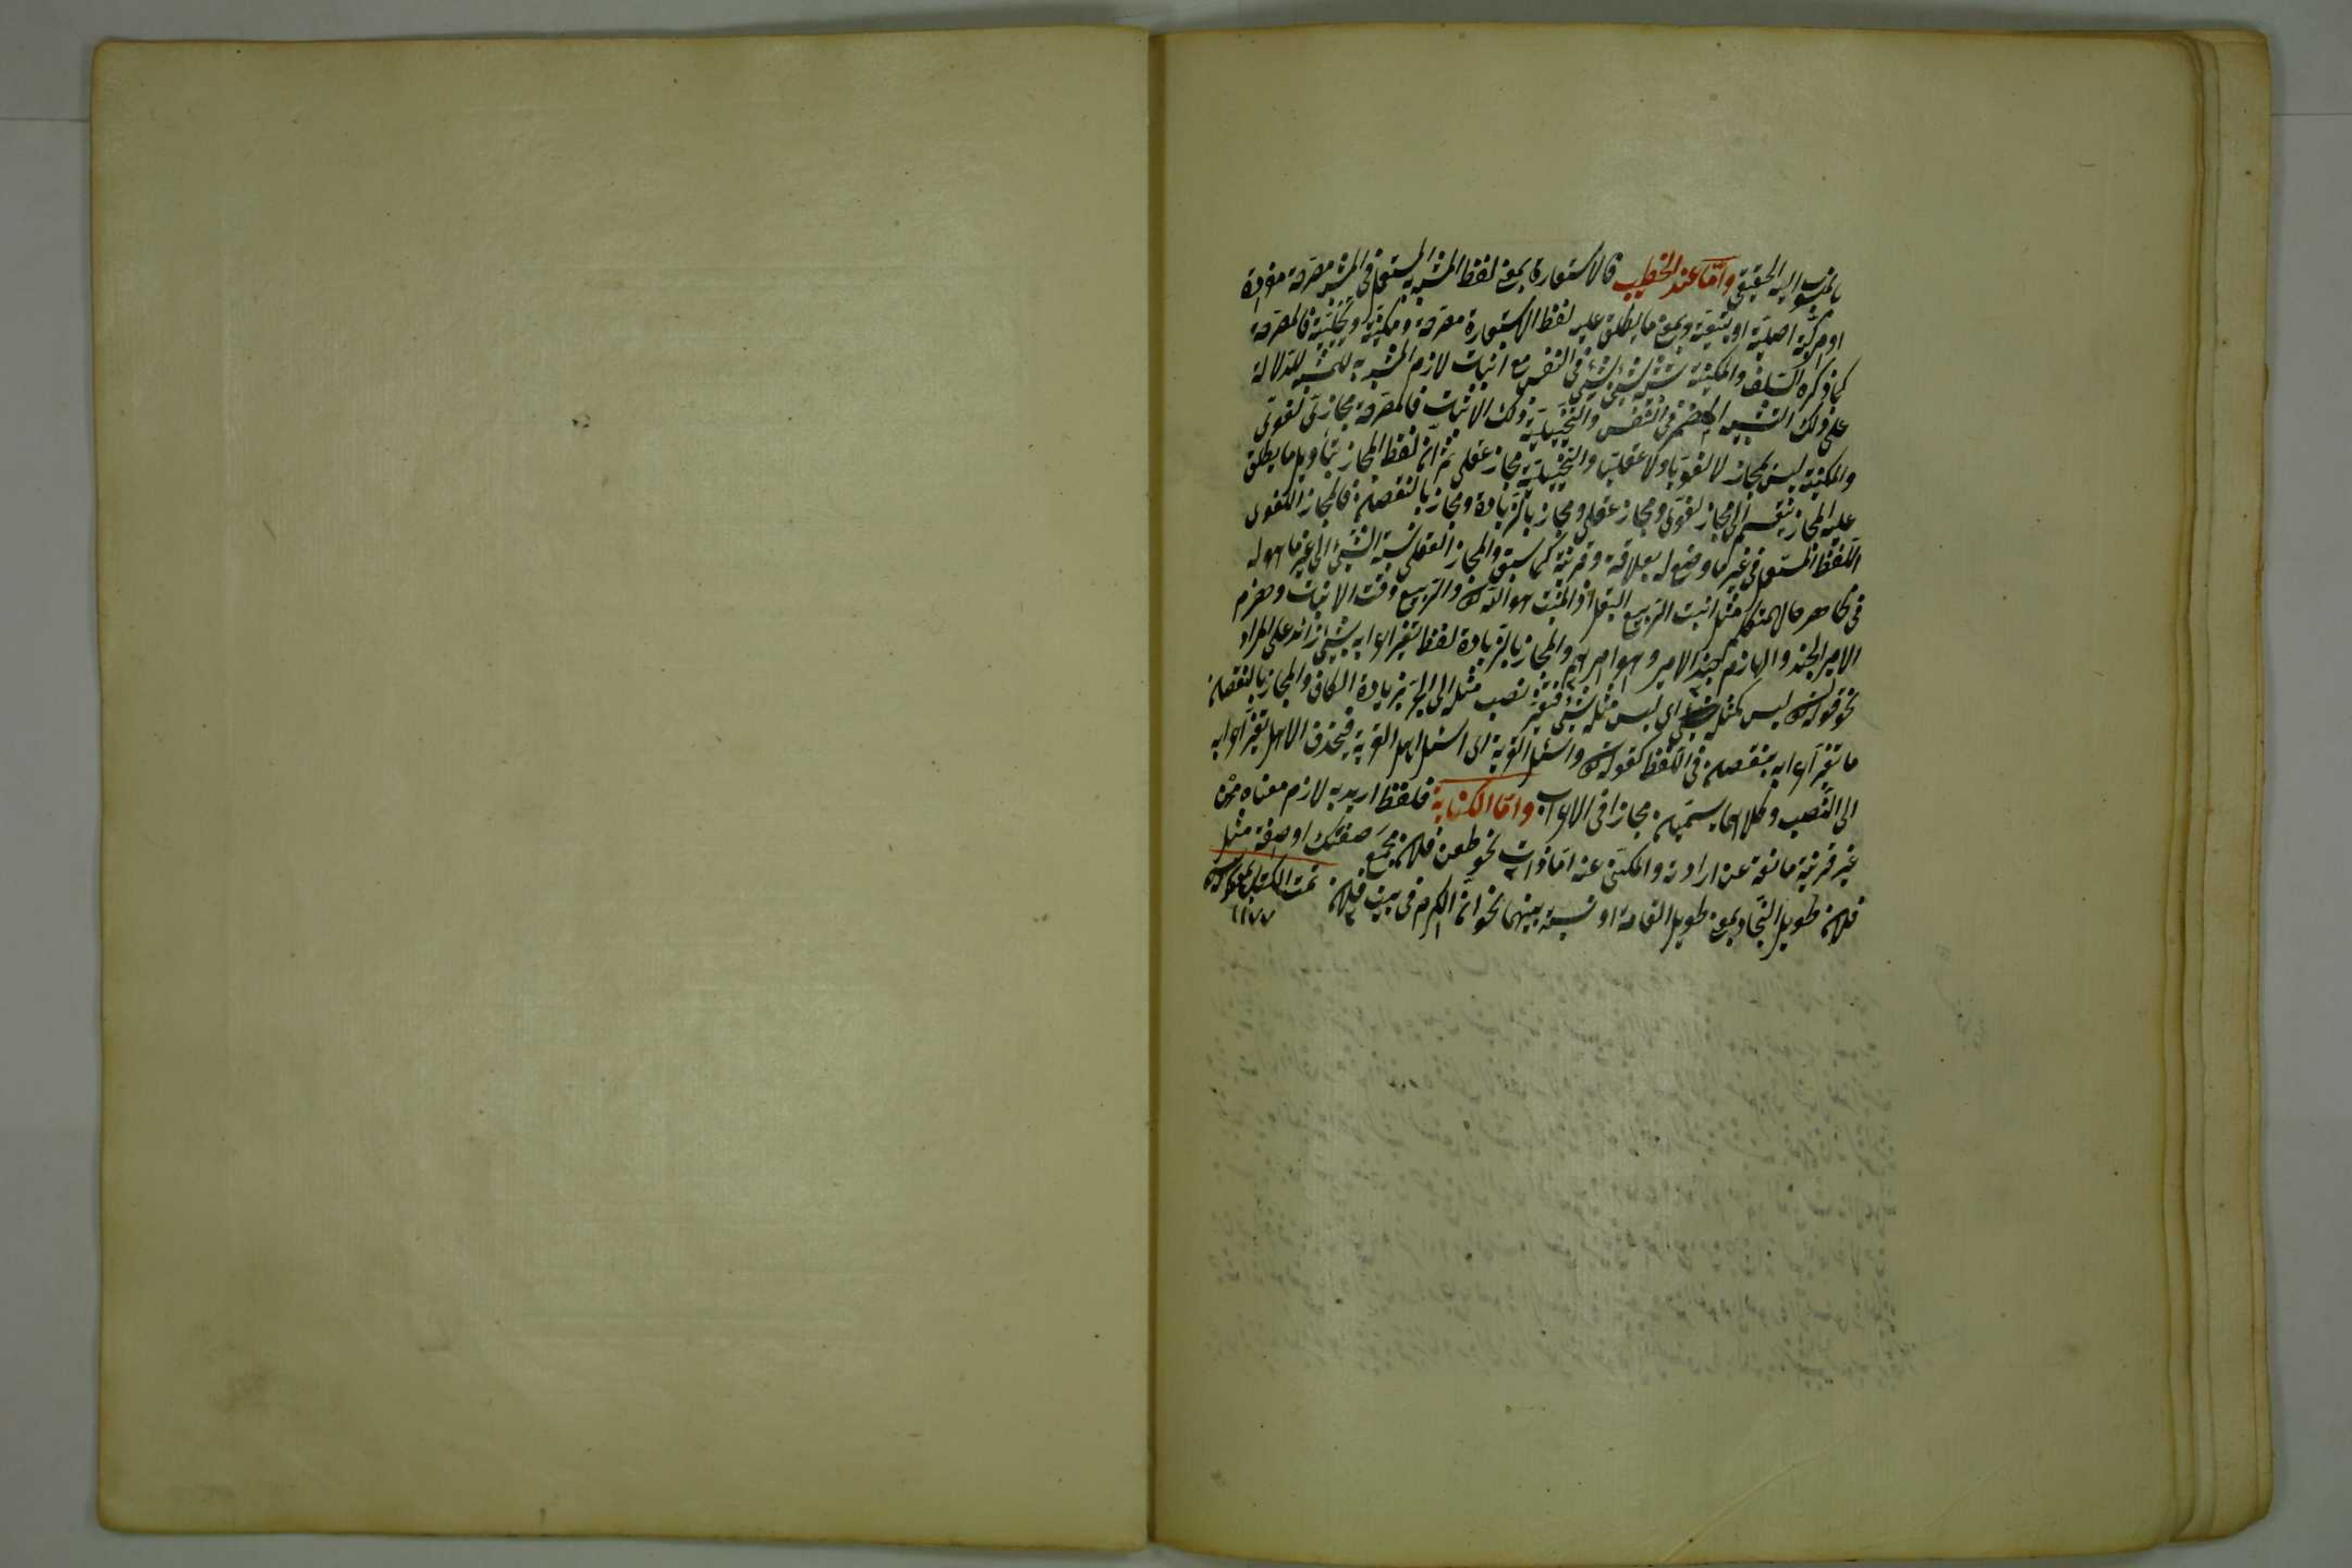 بالمنسوب اليه الحقيقي واما عند الخطيب فالاستعارة بمعنى لفظ المشبه به المستعمل في المشبه مصرحة مفردة
او مركبة اصلية او تبعية وبمعنى ما يطلق عليه لفظ الاستعارة مصرحة ومكنية وتخييلية فالمصرحة
كما ذكره السلف والمكنية تشبيه الشيء بشيء في النفس مع اثبات لازم المشبه به للمشبه للدلالة
على ذلك التشبيه المضمر في النفس والتخييلية ذلك الاثبات فالمصرحة مجاز لغوي
والمكنية ليس بمجاز لا لغويا ولا عقليا والتخييلية مجاز عقلي ثم ان لفظ المجاز بتأويل ما يطلق
عليه المجاز ينقسم الى مجاز لغوي ومجاز عقلي ومجاز بالزيادة ومجاز بالنقصان فالمجاز اللغوي
اللفظ المستعمل في غير ما وضع له بعلاقة وقرينة كما سبق والمجاز العقلي نسبة الشيء الى غير ما هو له
في ظاهر حال المتكلم مثل انبت الربيع البقل اذ المنبت هو الله تعالى والربيع وقت الانبات وهزم
الامير الجند والهازم جند الامير وهو امرهم والمجاز بالزيادة لفظ تغير اعرابه بشيء زائد على المراد
نحو قوله تعالى ليس كمثله شيء اي ليس مثله شيء فتغير نصب مثله الى الجر بزيادة الكاف والمجاز بالنقصان
ما تغير اعرابه بنقصان في اللفظ كقوله تعالى واسئل القرية اي اسئل اهل القرية فبحذف الاهل تغير اعرابه
الى النصب وكلاهما يسميان مجازا في الاعراب واما الكناية فلفظ اريد به لازم معناه من
غير قرينة مانعة عن ارادته والمكنى عنه اما ذات نحو طعن فلان مجمع ضغنك او صفة مثل
فلان طويل النجاد بمعنى طويل القامة او نسبة بينهما نحو ان الكرم في بيت فلان تمت الكتاب
١١٧٧